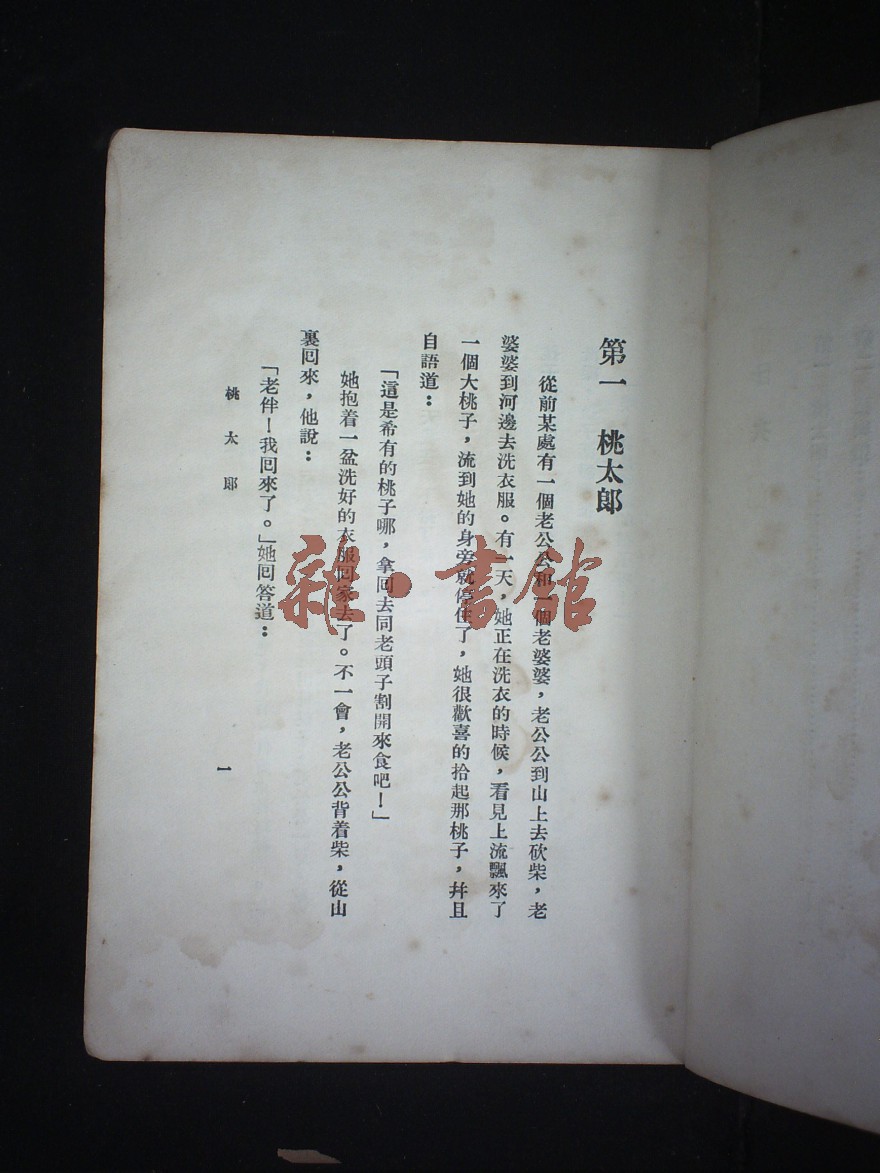 第一　桃太郎
從前某處有一個老公公和一個老婆婆，老公公到山上去砍柴，老
婆婆到河邊去洗衣服。有一天，她正在洗衣的時候，看見上流飄來了
一個大桃子，流到她的身旁就停住了，她很歡喜的拾起那桃子，幷且
自語道：
「這是希有的桃子哪，拿回去同老頭子割開來食吧！」
她抱着一盆洗好的衣服囘家去了。不一會，老公公背着柴，從山
裏囘來，他說：
「老伴！我囘來了。」她囘答道：
桃太郎
一
雜·書館